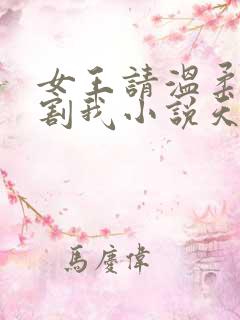 女王請溫柔
割我小說
馬慶偉